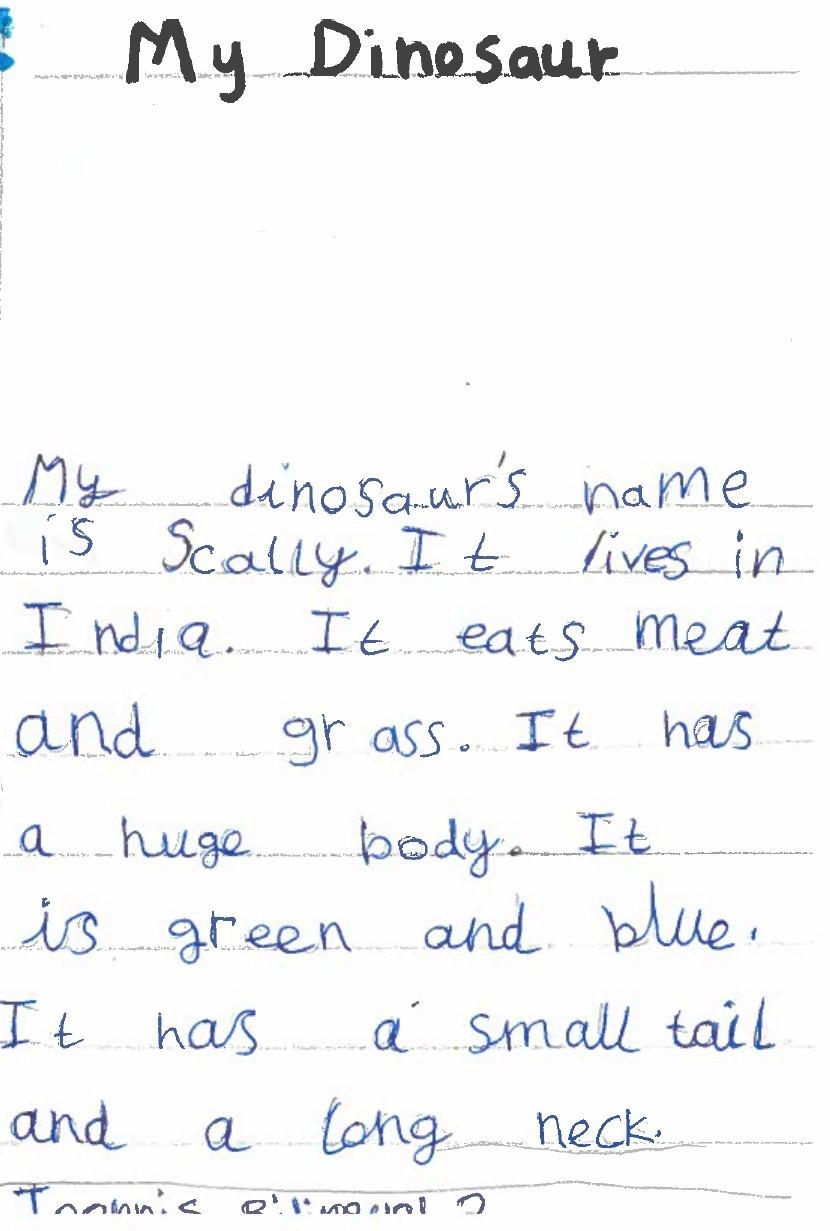 My Dinosaur
My dinosaur's name
is Scally. It lives in
India. It eats meat
and grass. It has
a huge body. It
is green and blue.
It has a small tail
and a long neck.